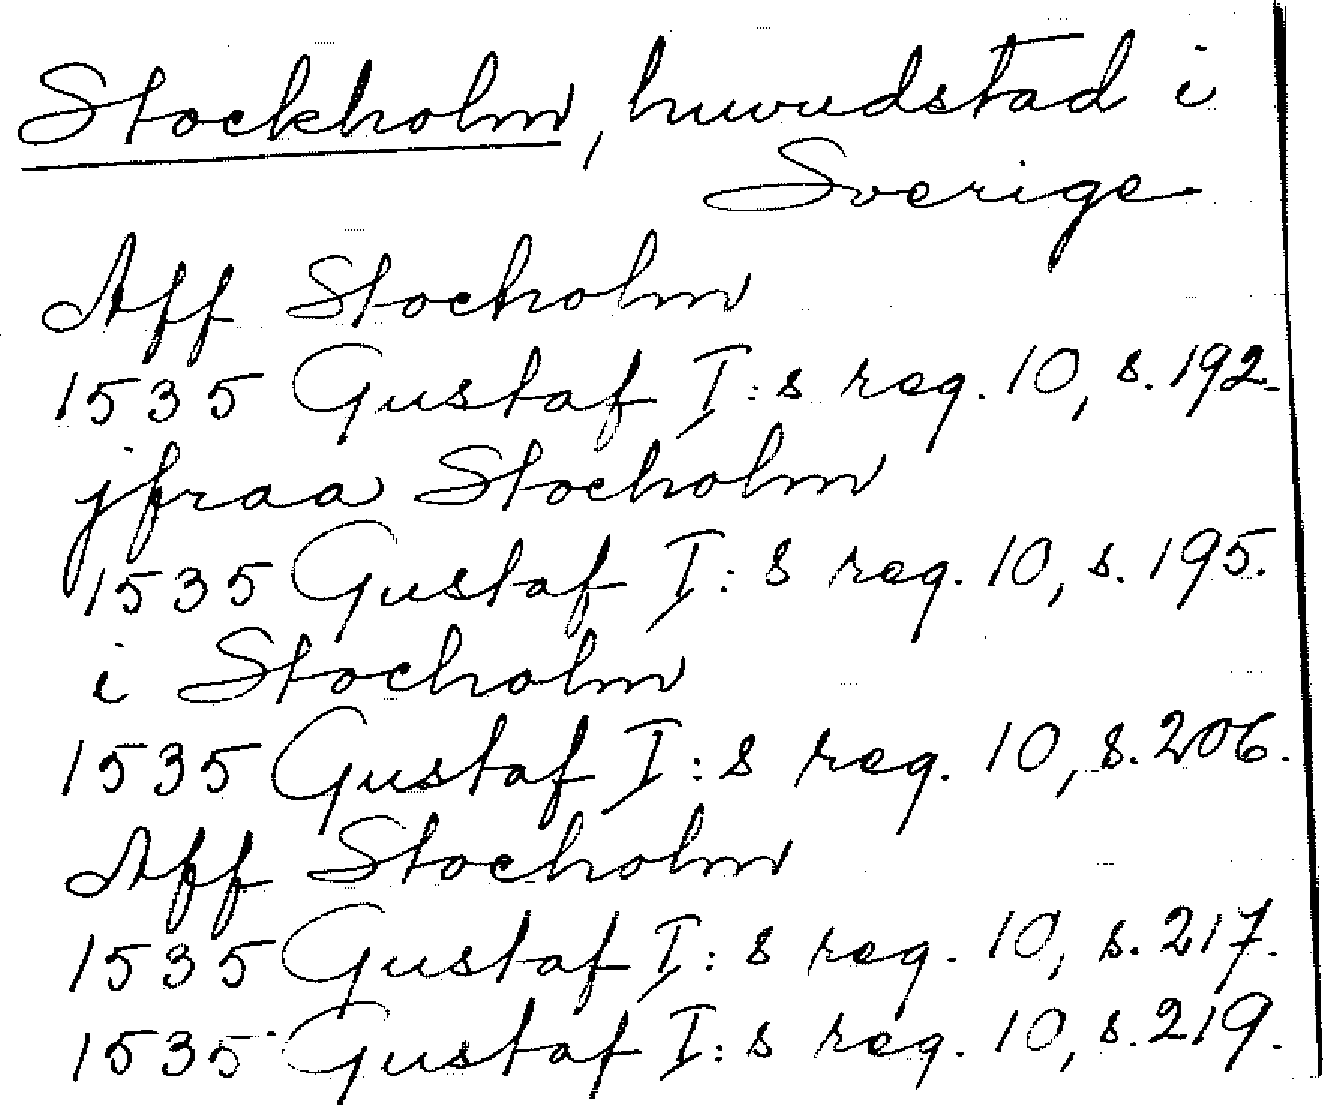 Stockholm, huvudstad i
Sverige
Aff Stocholm
1535 Gustaf I:s reg. 10, s. 192.
jfraa Stocholm
1535 Gustaf I:s reg. 10, s. 195.
i Stocholm
1535 Gustaf I:s reg. 10, s. 206.
Aff Stocholm
1535 Gustaf I:s reg. 10, s. 217.
1535 Gustaf I:s reg. 10, s. 219.